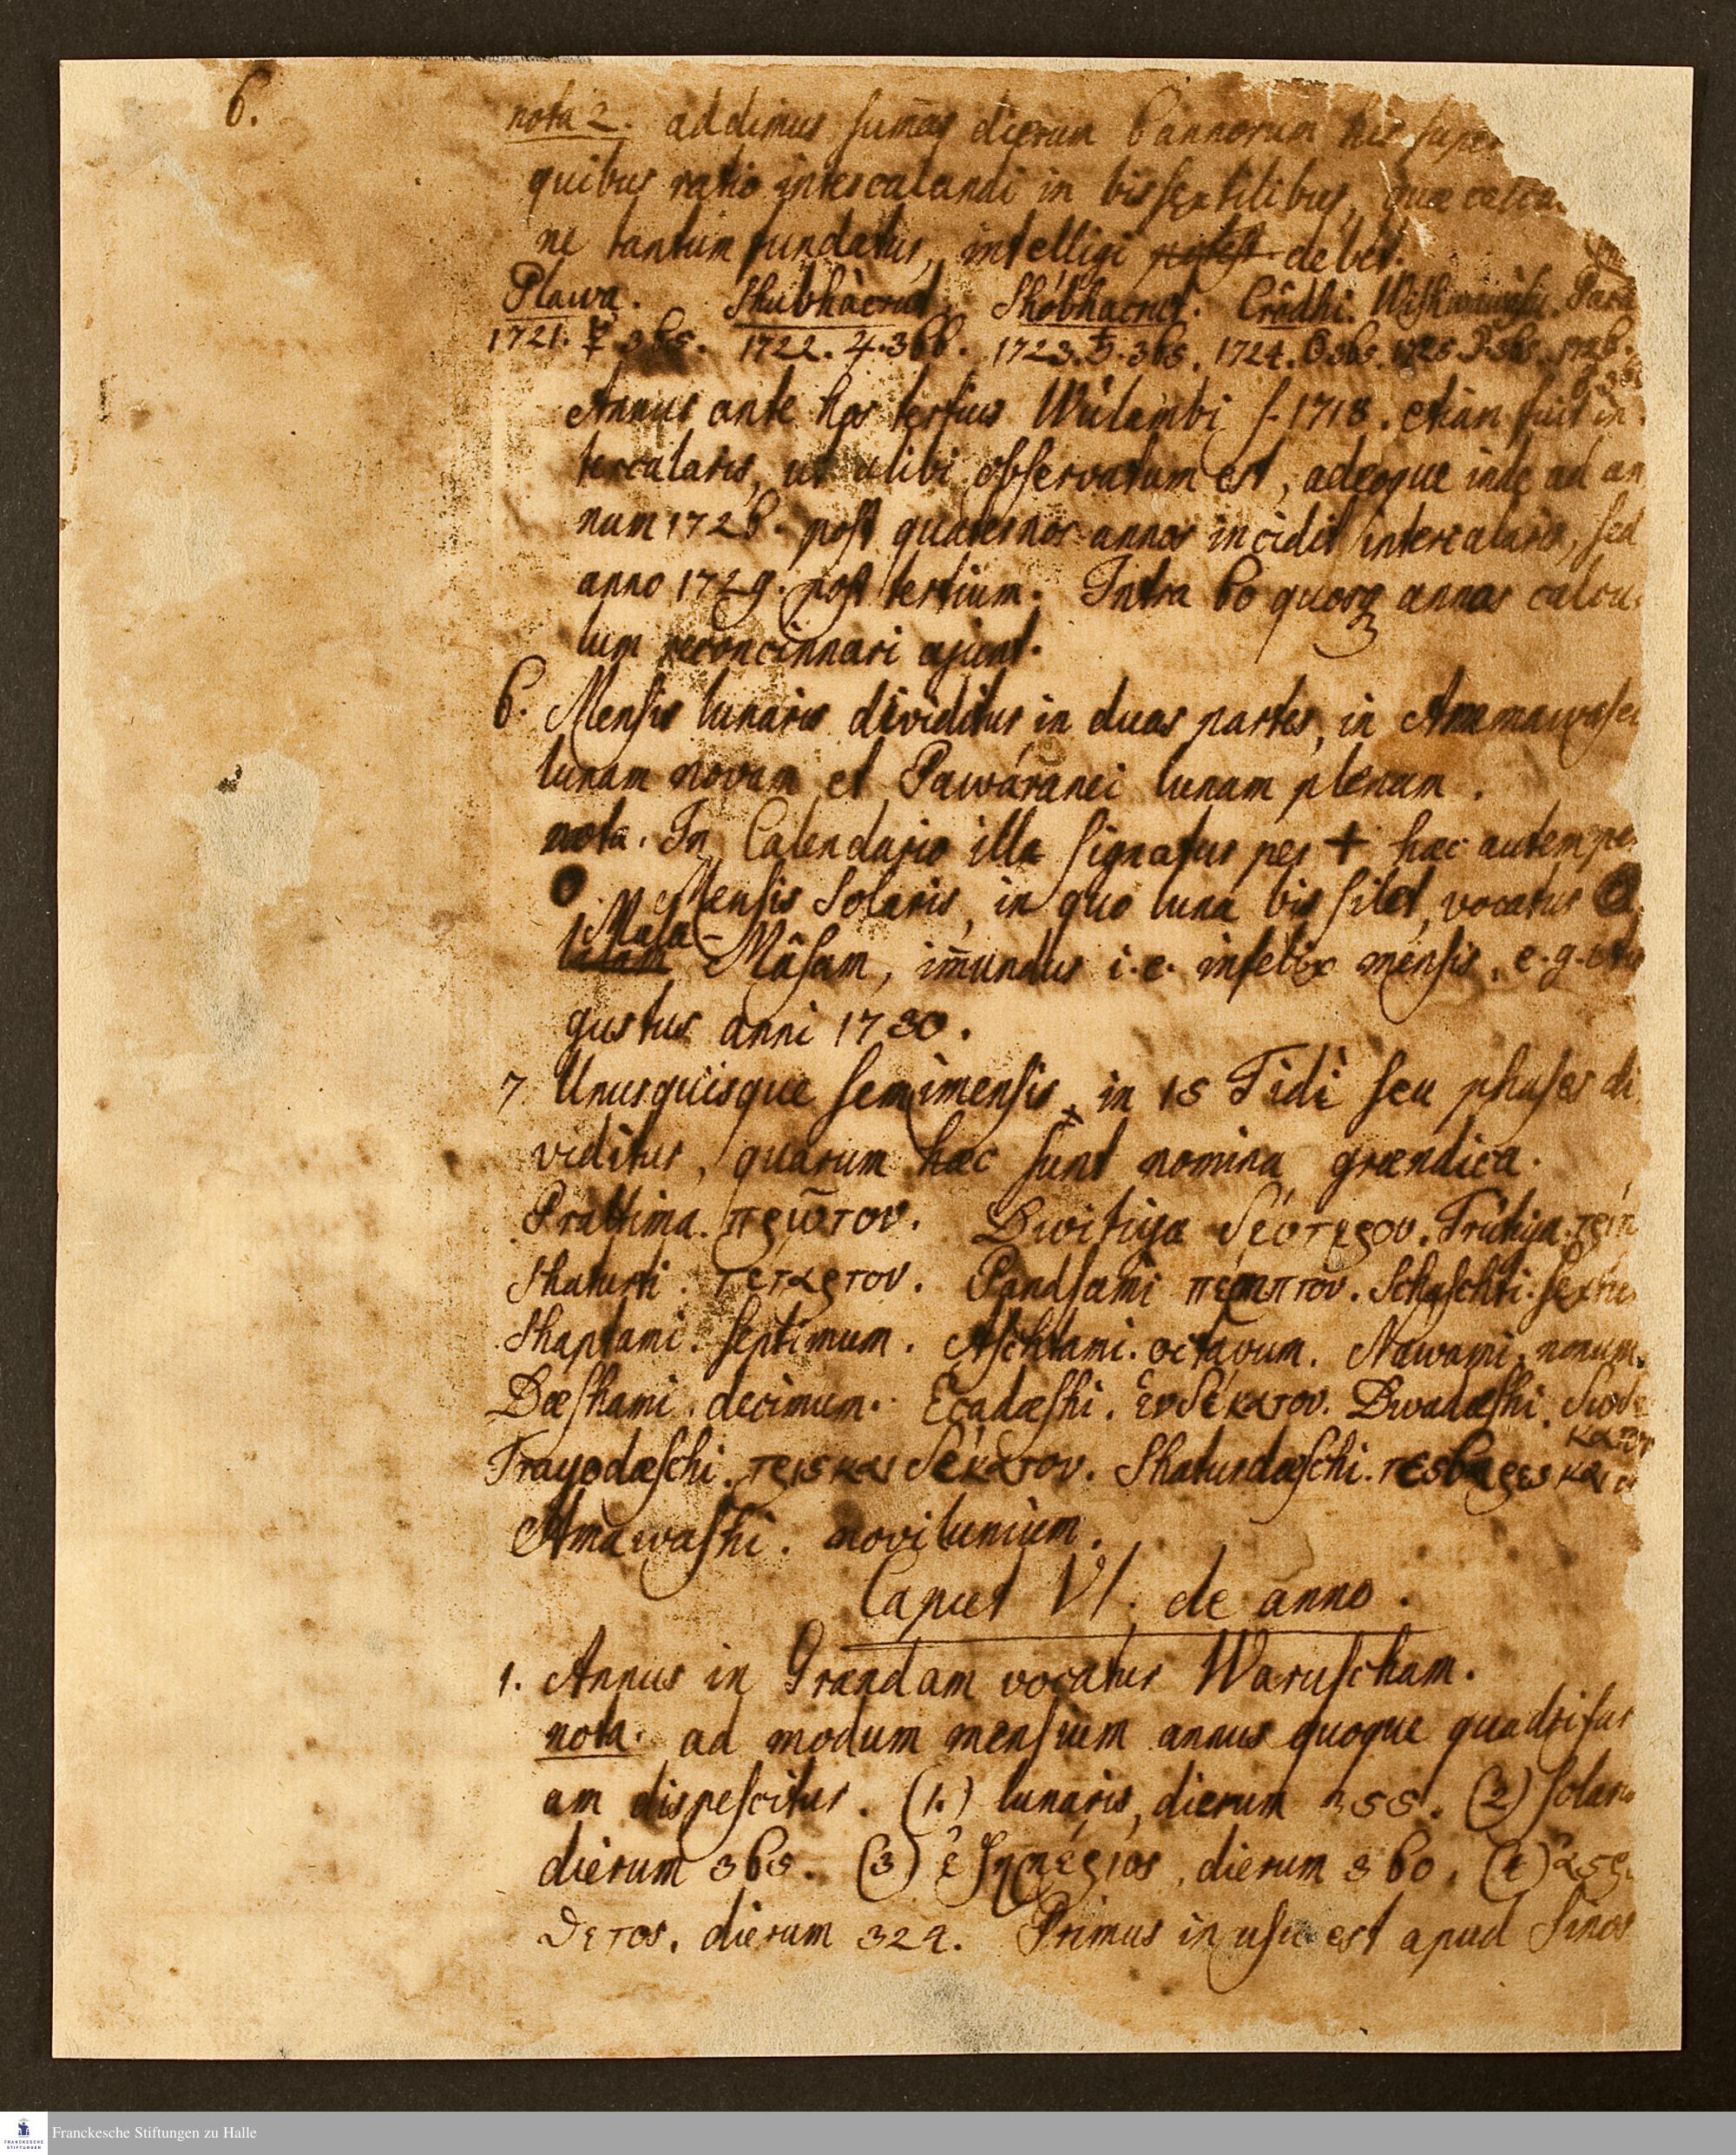 6.
nota 2. addimus sum̄as dierum 6 annorum his
quibus ratio intercalandi in bissextilibus, quæ
ne tantum fundatur, intelligi debet.
Plawa. Shubhàcrut. Shóbhacrut. Crôdhi.
1721. ☿ 365. 1722. ♃. 366. 1723. ♄. 365. 1724. ☉ 365. 1725 365. 1726.
Annus ante hos tertius Wilambi s. 1718. etiam fuit in
tercalaris, ut alibi observatum est, adeoque inde ad an
num 1726. post quaternos annos incidit intercalaris, sed
anno 1729. post tertium. Intra 60 quoqꝫ annos calcu
lum reconcinnari ajunt.
6. Mensis lunaris dividitur in duas partes, in Ammawasei
lunam novam et Pawáranei lunam plenam.
nota. In Calendario illa signatur per + hæc autem per
O. Mensis Solaris, in quo luna bis silet, vocatur
Mala-
Mâsam, im̄undus i.e. infelix mensis. e.g. Au
gustus anni 1730.
7 Unusquisque semimensis in 15 Tidi seu phases di
viditur, quarum hæc sunt nomina grændica.
Prattima. πρῶτον. Dwitiya δεύτερον. Tritiya.
Shaturti. τέταρτον. Pandsami πέμπτον. Schaschti.
Shaptami. septimum. Aschtami. octavum. Nawami. nonum.
Dæshami. decimum. Ecadæshi. ἑνδέκατον. Dwadæshi. δωδε
κατον
Trayodæschi. τρισκαιδέκατον. Shaturdæschi.
Amawashi. novilunium.
Caput VI. de anno.
1. Annus in Grandam vocatur Waruscham.
nota. ad modum mensium annus quoque quadrifar
am dispescitur. (1.) lunaris, dierum 355. (2) solaris
dierum 365. (3) ἐφημέριος, dierum 360. (4) ἀστρο
θετος. dierum 324. Primus in usu est apud Sinos
Franckesche Stiftungen zu Halle